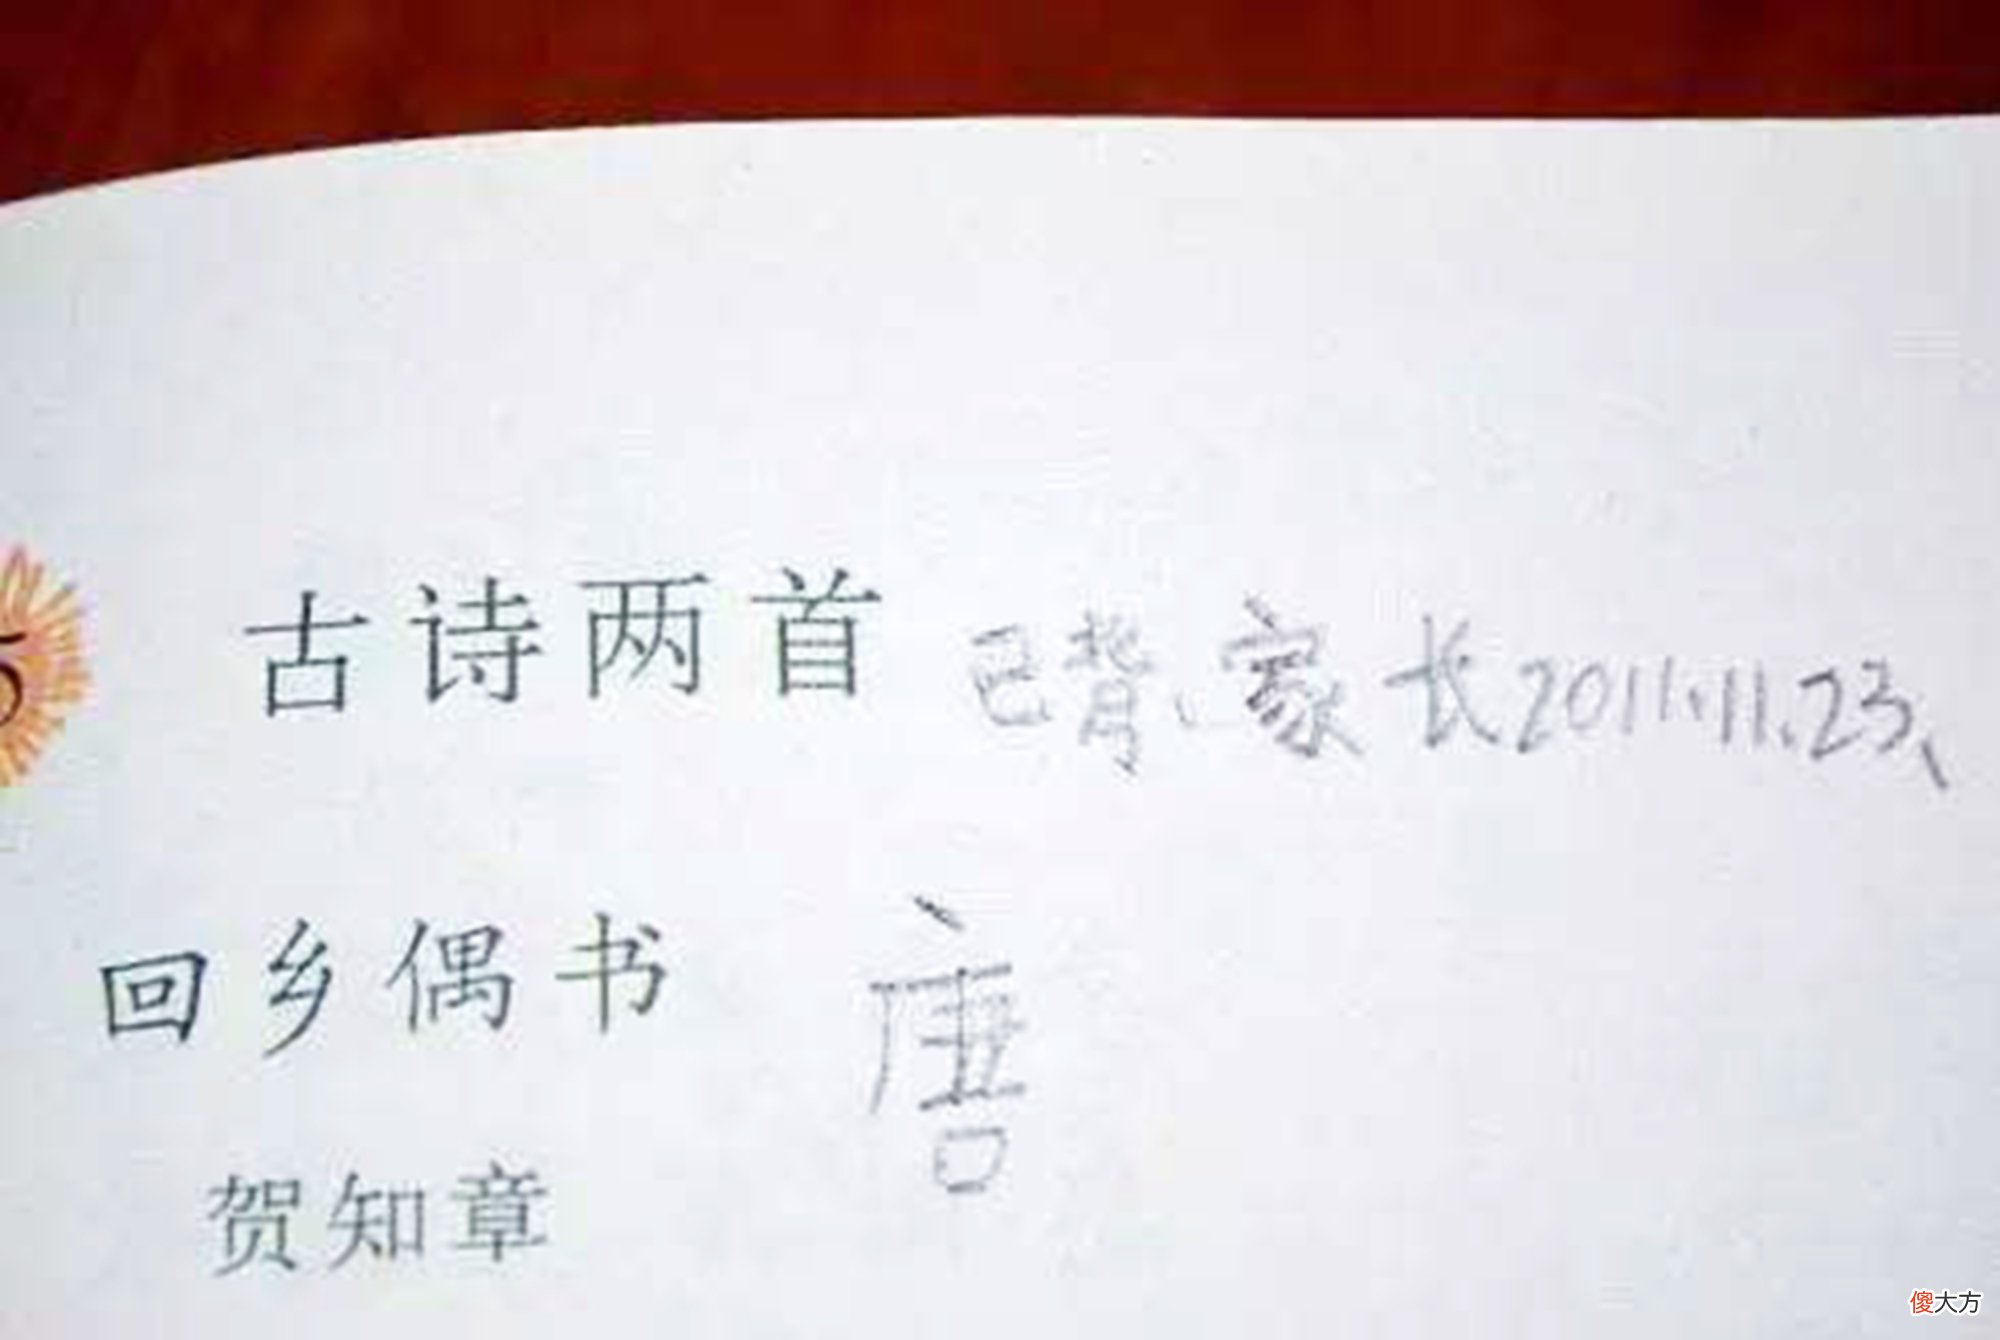 5 古诗两首 已背、家长2011.11.23、
回乡偶书 唐
贺知章
傻大方